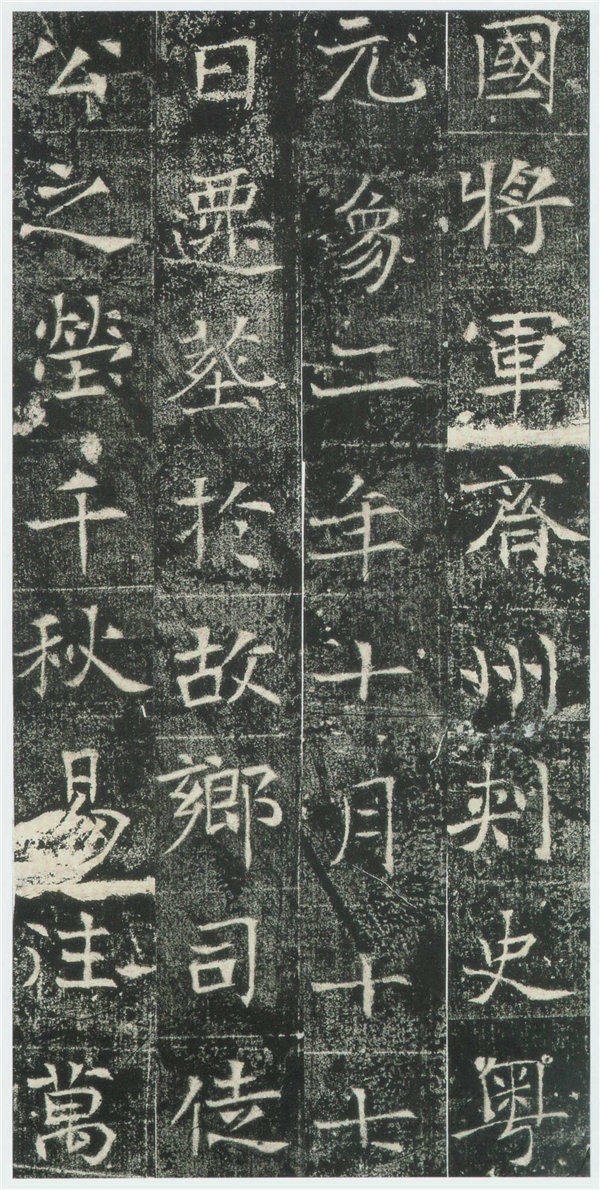 國將軍齊州刺史粤
元象二年十月十七
日遷葬於故鄉司徒
公之塋千秋易往萬